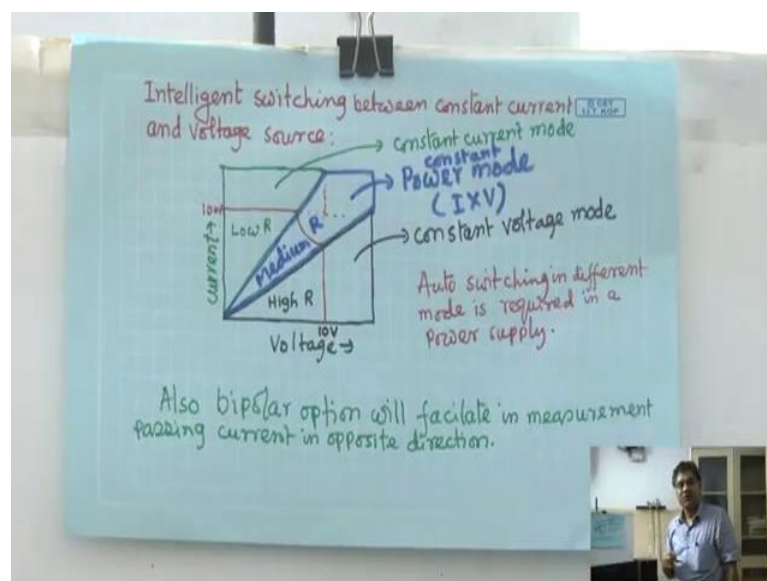 Intelligent switching between constant current
and voltage source:
constant current mode
constant
Power mode
(I×V)
constant voltage mode
Low R
Medium R
High R
current→
10V
Voltage→
Auto switching in different
mode is required in a
power supply.
Also bipolar option will facilate in measurement
passing current in opposite direction.